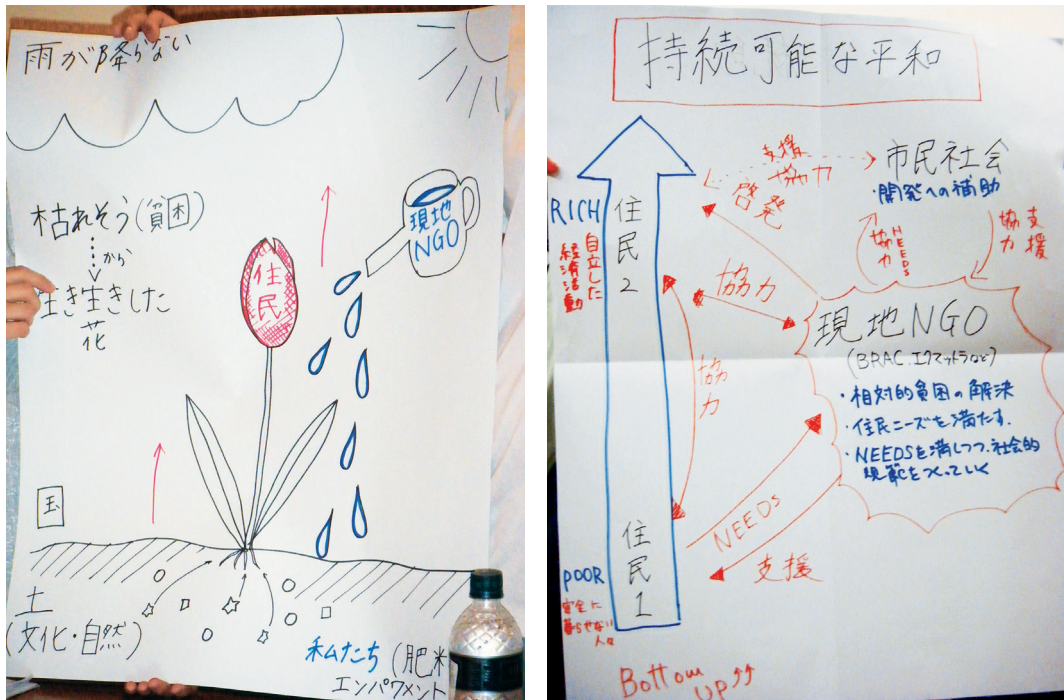 雨が降らない
枯れそう(貧困)
から
生き生きした
花
住民
現地
NGO
国
土
(文化・自然)
私たち(肥料
エンパワメント
持続可能な平和
RICH
自立した
経済活動
住民2
住民1
POOR
安全に
暮らせない
人々
Bottom
UP
支援
協力
啓発
市民社会
・開発への補助
NEEDS
協力
支援
協力
協力
協力
現地NGO
(BRAC.エクマットラなど)
・相対的貧困の解決
・住民ニーズを満たす.
・NEEDSを満しつつ、社会的
規範をつくっていく
NEEDS
支援